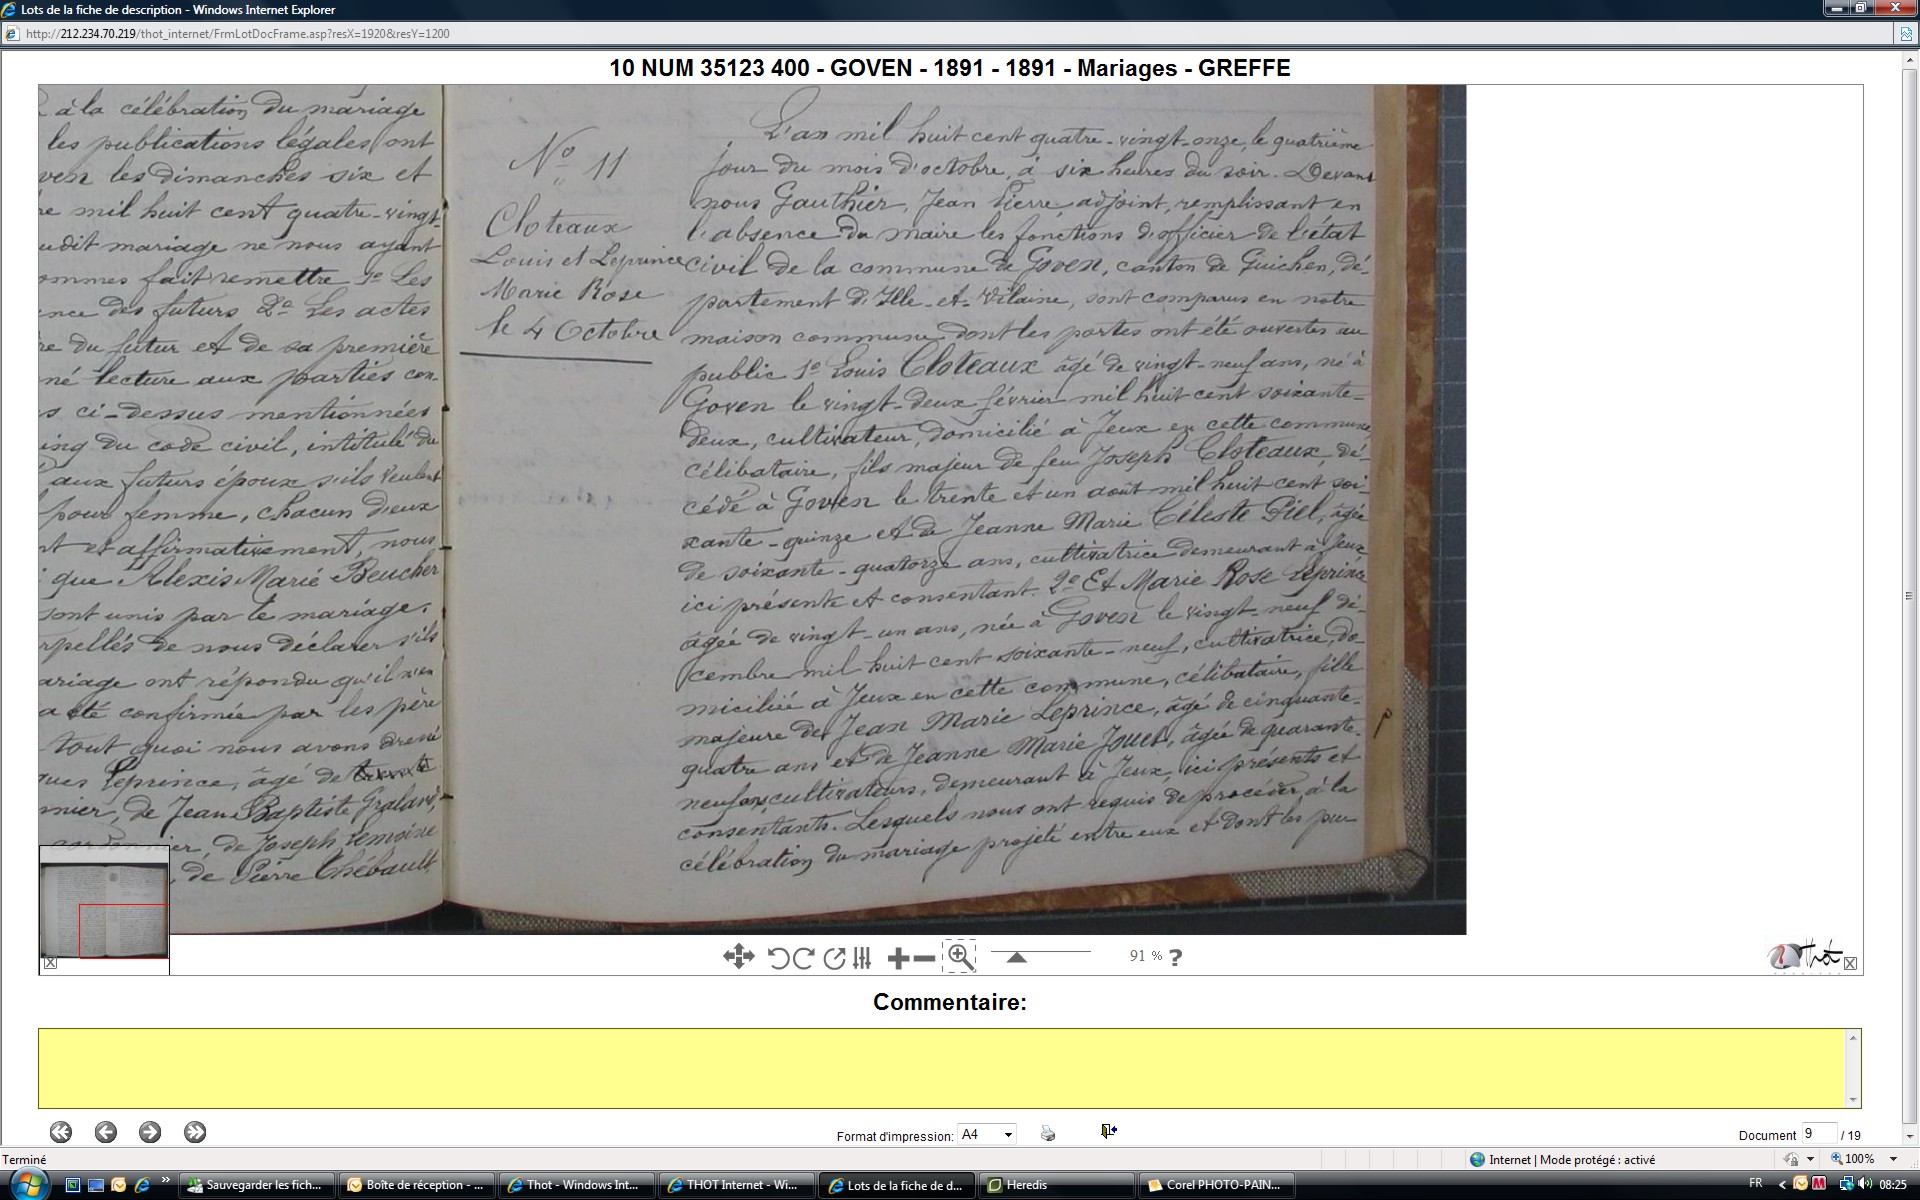 Lots de la fiche de description - Windows Internet Explorer
http://212.234.70.219/thot_internet/FrmLotDocFrame.asp?resX=1920&resY=1200
10 NUM 35123 400 - GOVEN - 1891 - 1891 - Mariages - GREFFE
à la célébration du mariage
les publications légales ont
ven les dimanches six et
re mil huit cent quatre-vingt-
udit mariage ne nous ayant
ommes fait remettre 1º Les
nce des futurs 2º Les actes
re du futur et de sa première
né lecture aux parties con-
s ci-dessus mentionnées
ing du code civil, intitulé du
aux futurs époux s'ils veulent
pour femme, chacun d'eux
nt et affirmativement, nous
que Alexis Marie Beucher
sont unis par le mariage.
rpellés de nous déclarer s'ils
ariage ont répondu qu'il n'en
a été confirmée par les père
tout quoi nous avons dressé
ques Leprince, âgé de
nnier, de Jean Baptiste
cordonnier, de Joseph Lemoine
, de Pierre Thébault
Nº 11
Cloteaux
Louis et Leprince
Marie Rose
le 4 Octobre
L'an mil huit cent quatre-vingt-onze, le quatrième
jour du mois d'octobre, à six heures du soir. Devant
nous Gauthier, Jean Pierre, adjoint, remplissant en
l'absence du maire les fonctions d'officier de l'état
civil de la commune de Goven, canton de Guichen, dé-
partement d'Ille-et-Vilaine, sont comparus en notre
maison commune dont les portes ont été ouvertes au
public 1º Louis Cloteaux âgé de vingt-neuf ans, né à
Goven le vingt-deux février mil huit cent soixante-
deux, cultivateur, domicilié à Jeux en cette commune,
célibataire, fils majeur de feu Joseph Cloteaux, dé-
cédé à Goven le trente et un août mil huit cent soi-
xante-quinze et de Jeanne Marie Céleste Piel, âgée
de soixante-quatorze ans, cultivatrice demeurant à Jeux,
ici présente et consentant. 2º Et Marie Rose Leprince
âgée de vingt-un ans, née à Goven le vingt-neuf dé-
cembre mil huit cent soixante-neuf, cultivatrice, do-
miciliée à Jeux en cette commune, célibataire, fille
majeure de Jean Marie Leprince, âgé de cinquante-
quatre ans et de Jeanne Marie Jouet, âgée de quarante-
neuf ans, cultivateurs, demeurant à Jeux, ici présents et
consentants. Lesquels nous ont requis de procéder à la
célébration du mariage projeté entre eux et dont les pu
91 % ?
Thot
Commentaire:
Format d'impression: A4
Document 9 / 19
Terminé
Internet | Mode protégé : activé
100%
Sauvegarder les fich...
Boîte de réception - ...
Thot - Windows Int...
THOT Internet - Wi...
Lots de la fiche de d...
Heredis
Corel PHOTO-PAIN...
FR
08:25